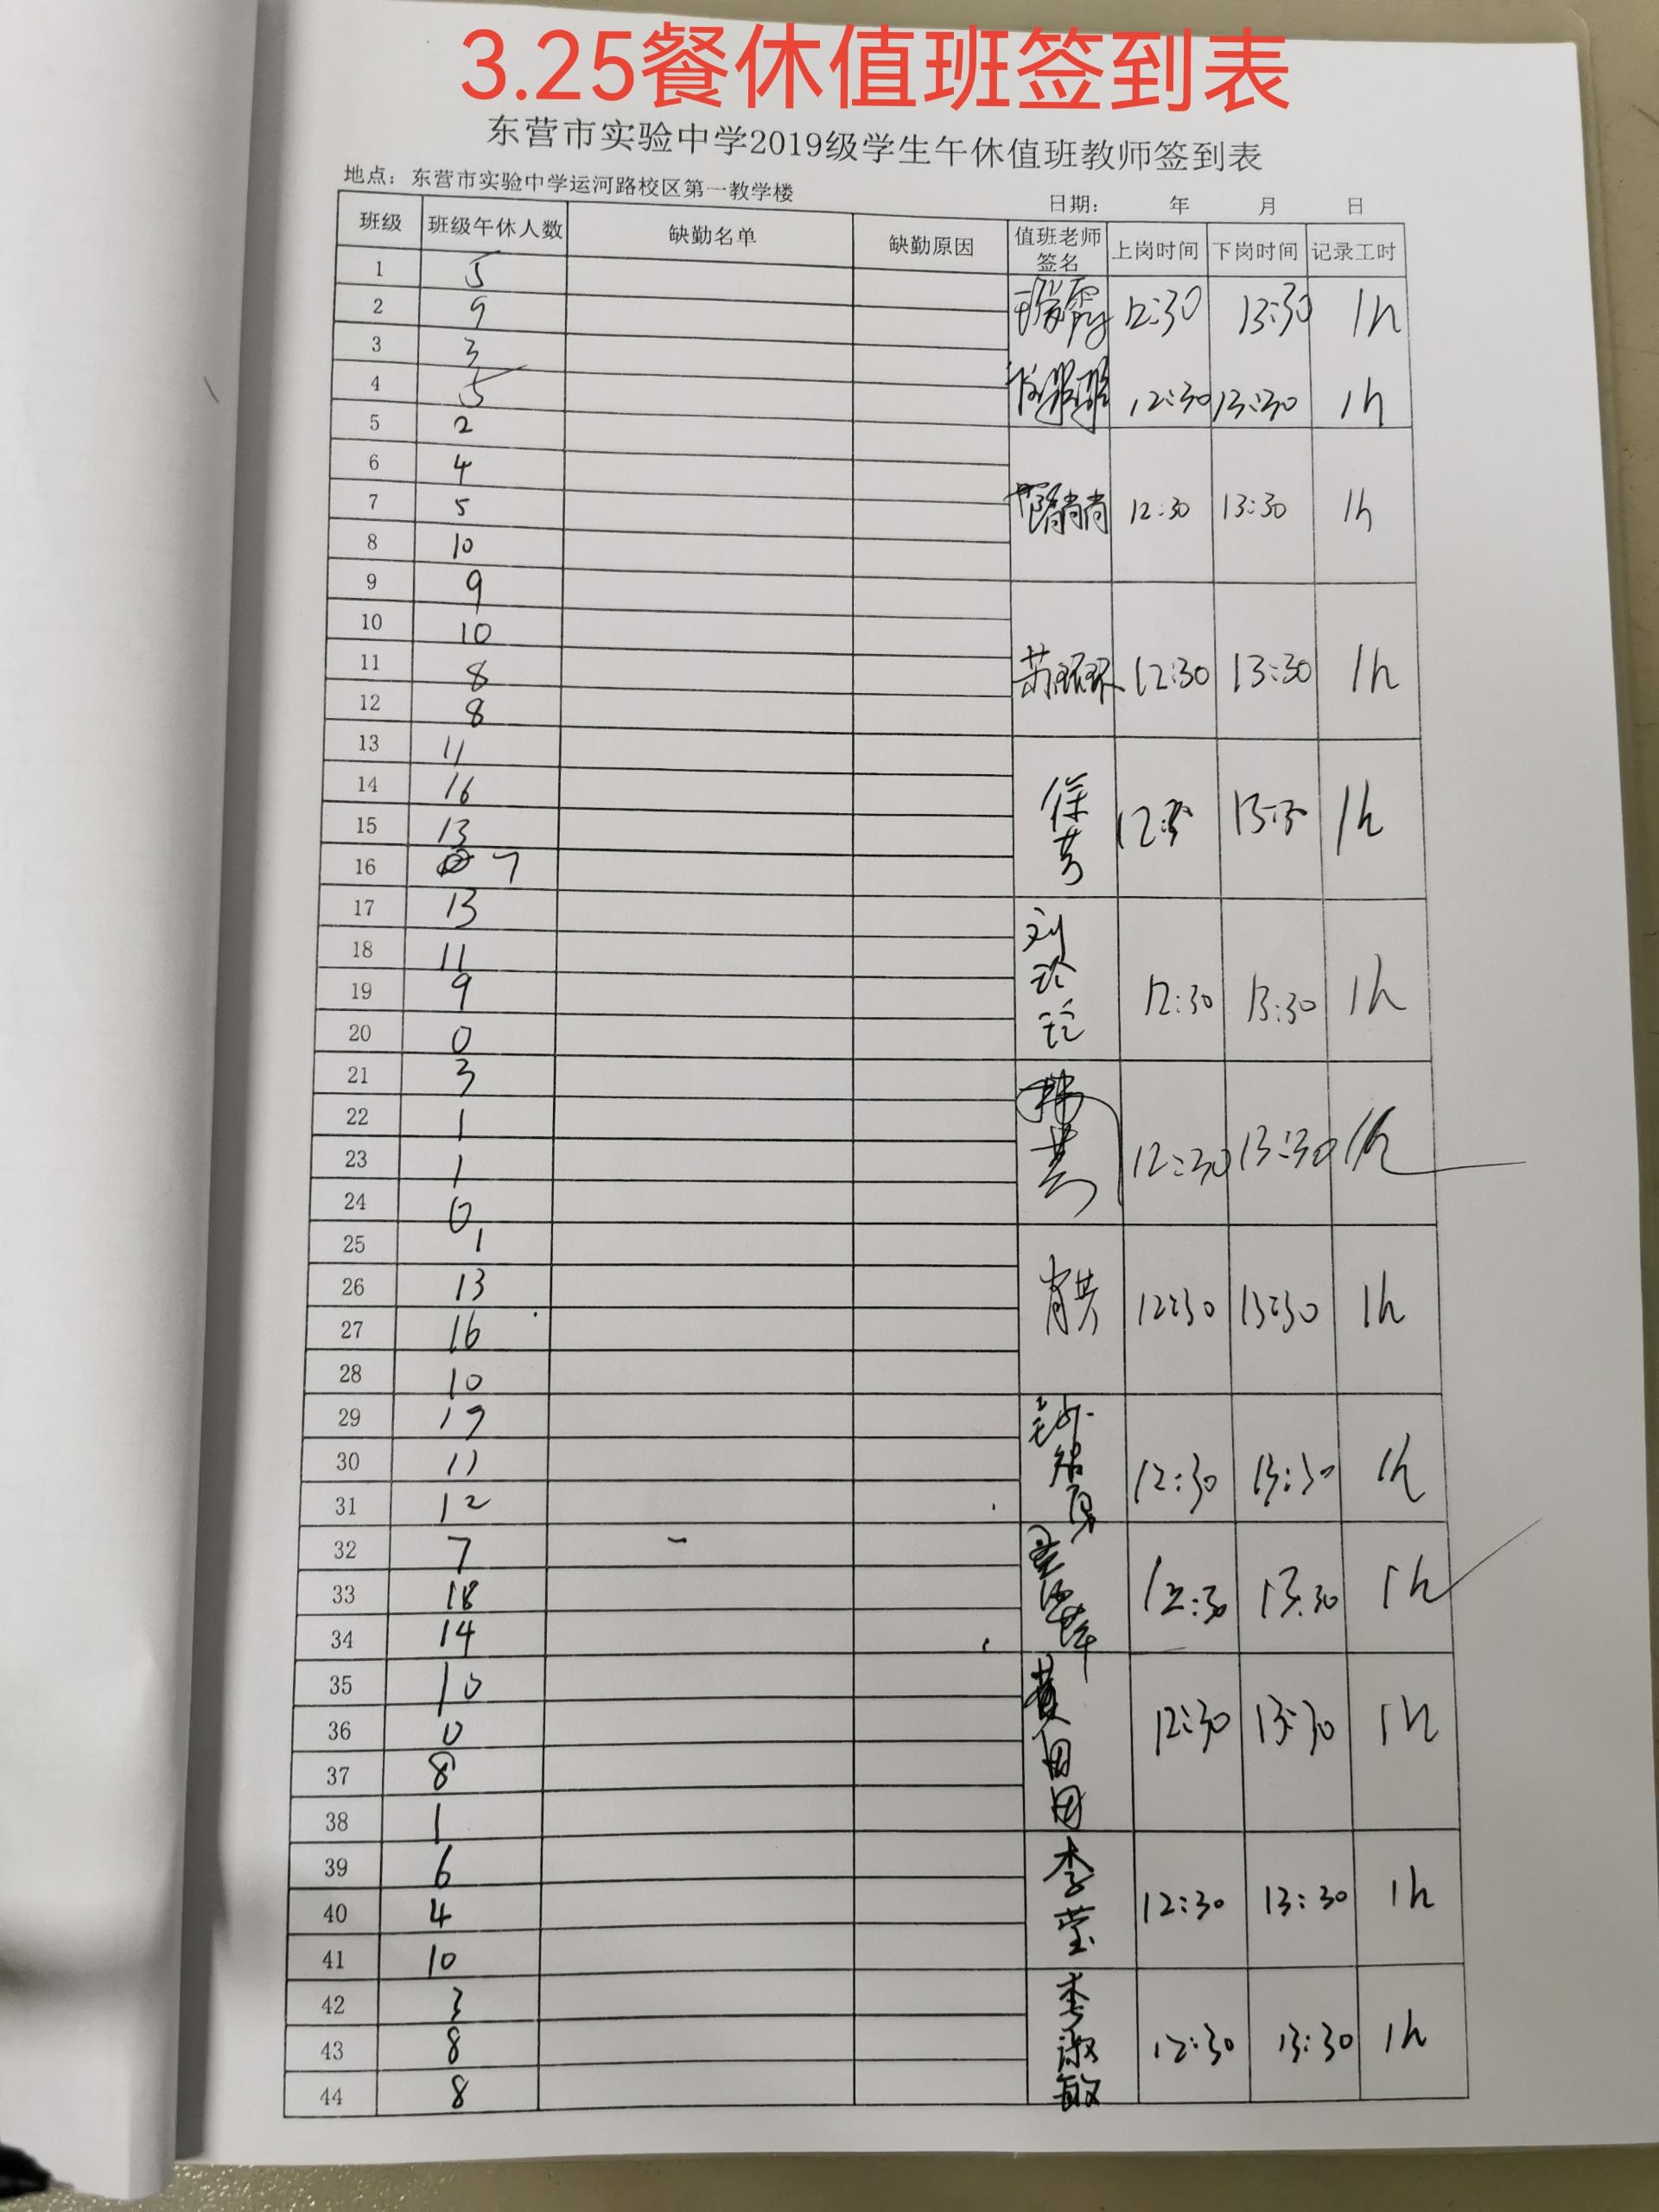 3.25餐休值班签到表
东营市实验中学2019级学生午休值班教师签到表
地点：东营市实验中学运河路校区第一教学楼 日期： 年 月 日
班级 班级午休人数 缺勤名单 缺勤原因 值班老师签名 上岗时间 下岗时间 记录工时
1 5
2 9 12:30 13:30 1h
3 3
4 5 12:30 13:30 1h
5 2
6 4
7 5 12:30 13:30 1h
8 10
9 9
10 10
11 8 苏环环 12:30 13:30 1h
12 8
13 11
14 16
15 13 徐芳 1h
16 7
17 13
18 11
19 9 刘玲玲 12:30 13:30 1h
20 0
21 3
22 1
23 1 12:30 13:30 1h
24 0
25 1
26 13
27 16 12:30 13:30 1h
28 10
29 19
30 11 12:30 13:30 1h
31 12
32 7
33 18 12:30 13:30 1h
34 14
35 10
36 0 黄田田 12:30 13:30 1h
37 8
38 1
39 6
40 4 李莹 12:30 13:30 1h
41 10
42 3
43 8 李淑敏 12:30 13:30 1h
44 8